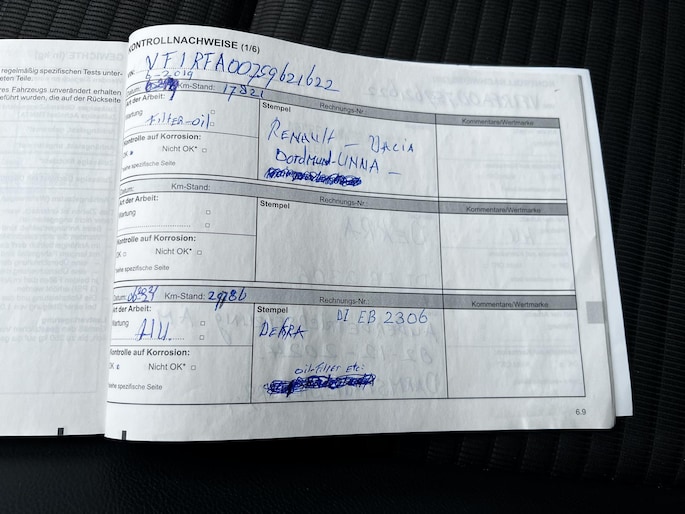 regelmäßig spezifischen Tests unter-
eten Teile.
res Fahrzeugs unverändert erhalten
eführt wurden, die auf der Rückseite
KONTROLLNACHWEISE (1/6)
VIN: VF1RFA00759621622
6-2019
Datum: Km-Stand: 17821
Art der Arbeit:
Wartung
Filter-oil
Kontrolle auf Korrosion:
OK Nicht OK*
*siehe spezifische Seite
Rechnungs-Nr.:
Stempel
RENAULT - DACIA
Dortmund-UNNA -
Kommentare/Wertmarke
Datum: Km-Stand:
Art der Arbeit:
Wartung
Kontrolle auf Korrosion:
OK Nicht OK*
*siehe spezifische Seite
Rechnungs-Nr.:
Stempel
Kommentare/Wertmarke
Datum: Km-Stand:
Art der Arbeit:
Wartung
Kontrolle auf Korrosion:
OK Nicht OK*
*siehe spezifische Seite
Rechnungs-Nr.:
Stempel
DI EB 2306
DEKRA
oil-filter etc.
Kommentare/Wertmarke
6.9